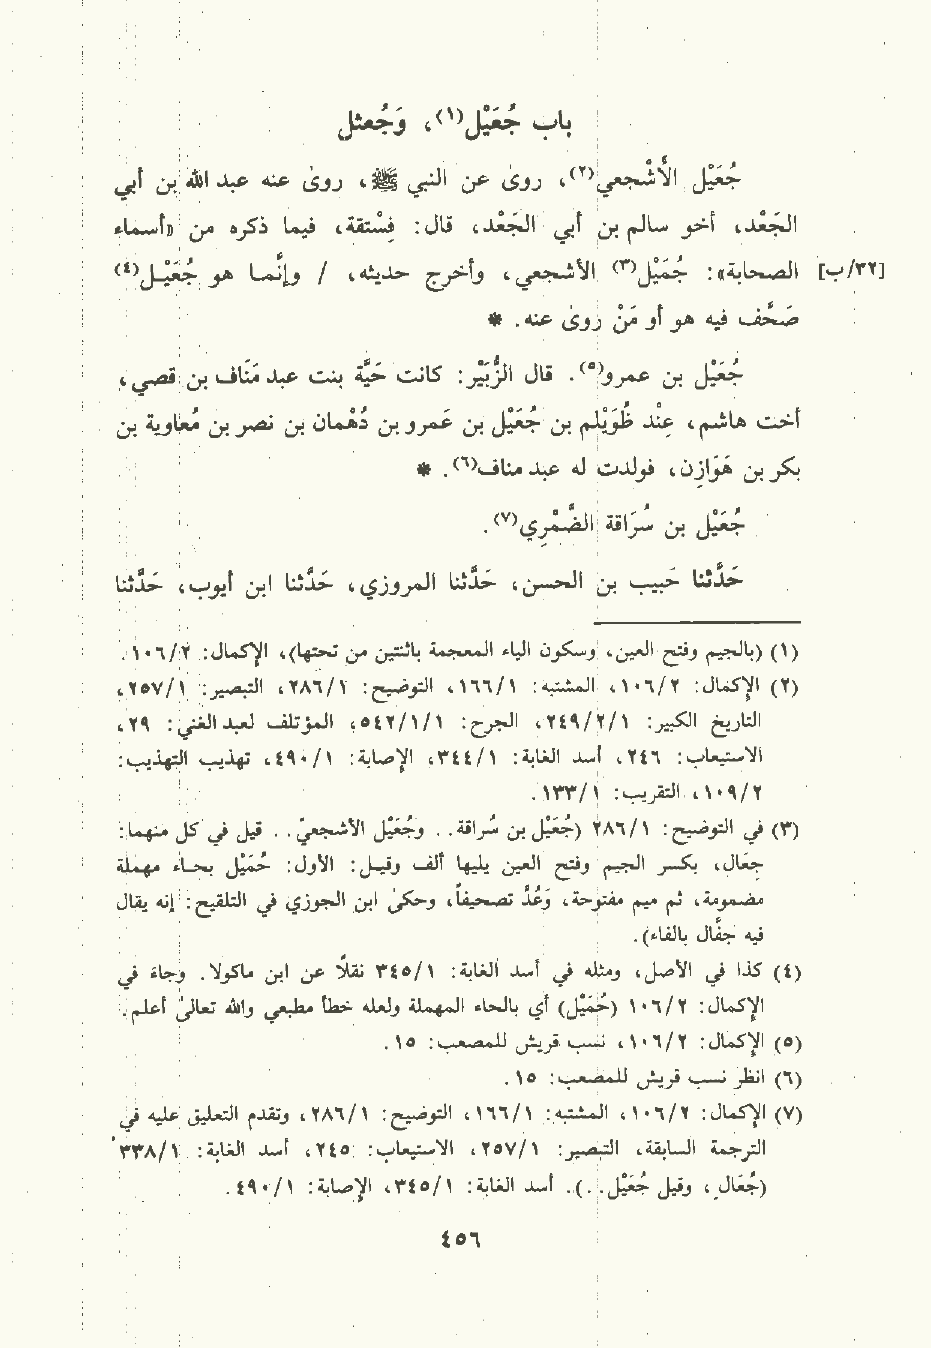 باب جُعَيْل(١)، وَجُعثل
جُعَيْل الأَشْجعي(٢)، روىٰ عن النبي ﷺ، روىٰ عنه عبد الله بن أبي
الجَعْد، أخو سالم بن أبي الجَعْد، قال: فِسْتقة، فيما ذكره من «أسماء
[٣٢/ب] الصحابة»: جُمَيْل(٣) الأشجعي، وأخرج حديثه، / وإنَّما هو جُعَيْل(٤)
صَحَّف فيه هو أو مَنْ روىٰ عنه. *
جُعَيْل بن عمرو(٥). قال الزُّبَيْر: كانت حَيَّة بنت عبد مَنَاف بن قصي،
أخت هاشم، عِنْد ظُوَيْلم بن جُعَيْل بن عَمرو بن دُهْمان بن نصر بن مُعاوية بن
بكر بن هَوَازِن، فولدت له عبد مناف(٦). *
جُعَيْل بن سُرَاقة الضَّمْرِي(٧).
حَدَّثنا حَبيب بن الحسن، حَدَّثنا المروزي، حَدَّثنا ابن أيوب، حَدَّثنا
(١) (بالجيم وفتح العين، وسكون الياء المعجمة باثنتين من تحتها)، الإكمال: ١٠٦/٢.
(٢) الإكمال: ١٠٦/٢، المشتبه: ١٦٦/١، التوضيح: ٢٨٦/١، التبصير: ٢٥٧/١،
التاريخ الكبير: ٢٤٩/٢/١، الجرح: ٥٤٢/١/١، المؤتلف لعبد الغني: ٢٩،
الاستيعاب: ٢٤٦، أسد الغابة: ٣٤٤/١، الإصابة: ٤٩٠/١، تهذيب التهذيب:
١٠٩/٢، التقريب: ١٣٣/١.
(٣) في التوضيح: ٢٨٦/١ (جُعَيْل بن سُراقة.. وجُعَيْل الأشجعيّ.. قيل في كل منهما:
جِعَال، بكسر الجيم وفتح العين يليها ألف وقيل: الأول: حُمَيْل بحاء مهملة
مضمومة، ثم ميم مفتوحة، وَعُدَّ تصحيفاً، وحكىٰ ابن الجوزي في التلقيح: إنه يقال
فيه جفَّال بالفاء).
(٤) كذا في الأصل، ومثله في أسد الغابة: ٣٤٥/١ نقلاً عن ابن ماكولا. وجاء في
الإكمال: ١٠٦/٢ (حُمَيْل) أي بالحاء المهملة ولعله خطأ مطبعي والله تعالىٰ أعلم.
(٥) الإكمال: ١٠٦/٢، نسب قريش للمصعب: ١٥.
(٦) انظر نسب قريش للمصعب: ١٥.
(٧) الإكمال: ١٠٦/٢، المشتبه: ١٦٦/١، التوضيح: ٢٨٦/١، وتقدم التعليق عليه في
الترجمة السابقة، التبصير: ٢٥٧/١، الاستيعاب: ٢٤٥، أسد الغابة: ٣٣٨/١
(جُعَال، وقيل جُعَيْل...). أسد الغابة: ٣٤٥/١، الإصابة: ٤٩٠/١.
٤٥٦